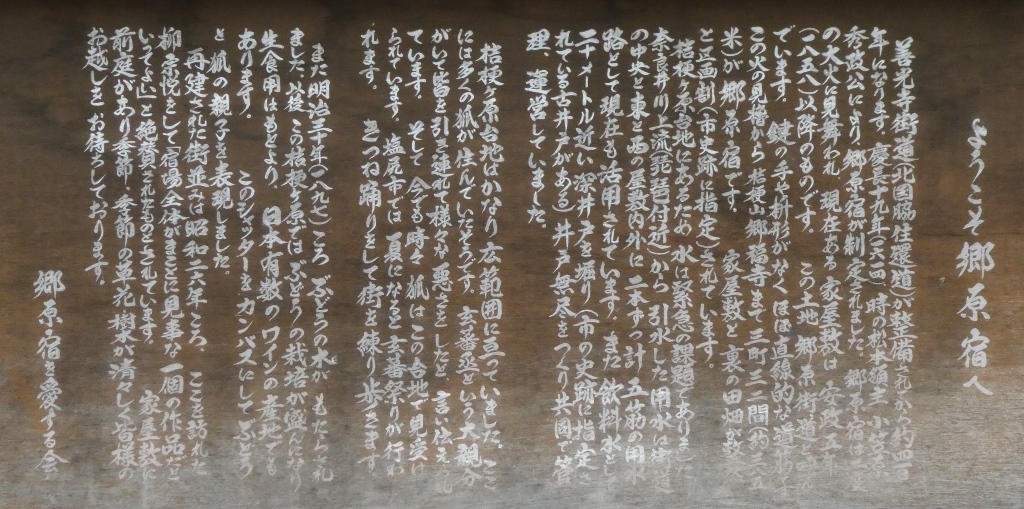 ようこそ郷原宿へ
善光寺街道(北国脇往還道)が整備されてから約四百
年になります。慶長十九年(一六一四)時の松本領主 小笠原
秀政公により 郷原宿が制定されました。郷原宿は二度
の大火に見舞われ 現在ある 家屋敷は 安政五年
(一八五八)以降のものです。 この土地 郷原街道と
です。 鍵の手と枡形がなくほぼ直線的な道
この火の見櫓から 桔梗山郷福寺まで 三町三三間(約三六五
米)が 郷原宿です。 家屋敷と裏の田畑が整然
と区画割(市史跡に指定)されています。
桔梗ヶ原台地にあるため 水は緊急の課題でありました
奈良井川上流(琵琶付近)から 引水した用水は街道
の中央と東と西の屋敷内外に二本ずつ計 五筋の用水
路として現在も活用されています。また 飲料水として
二十メートル近い深井戸を堀り(市の史跡に指定さ
れている古井戸がある)井戸無尽をつくり共同で管
理 運営していました。
桔梗ヶ原台地はかなり広範囲に亘っていました。ここ
には多くの狐が住んでいたそうです。玄蕃丞という大親分
がいて皆を引き連れて様々な悪さをしたと 言い伝えられ
ています。 そして 今でも時々 狐はこの台地で見受け
られています。塩尻市では 夏になると玄蕃祭りが行わ
れます。 きつね踊りをして街を練り歩きます
また明治三十年(一八九七)ころ ぶどうの木が もたらされ
ました。以後 この桔梗ヶ原ではぶどうの栽培が盛んになり
生食用はもとより 日本有数の ワインの 産地でも
あります。 このシャッターをカンバスにして ぶどう
と 狐の親子を表現しました。
再建された街並は 昭和二六年ころ、ここを訪れた
柳 宗悦をして「宿場全体がまことに見事な 一個の作品だと
いってよい」と 絶賛されたものとされています。 家屋敷に
前庭があり 季節 季節の草花 樹木が清々しく 皆様の
お越しを お待ちしております。
郷原宿を愛する会